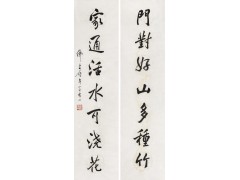 門對好山多種竹
家通活水可澆花